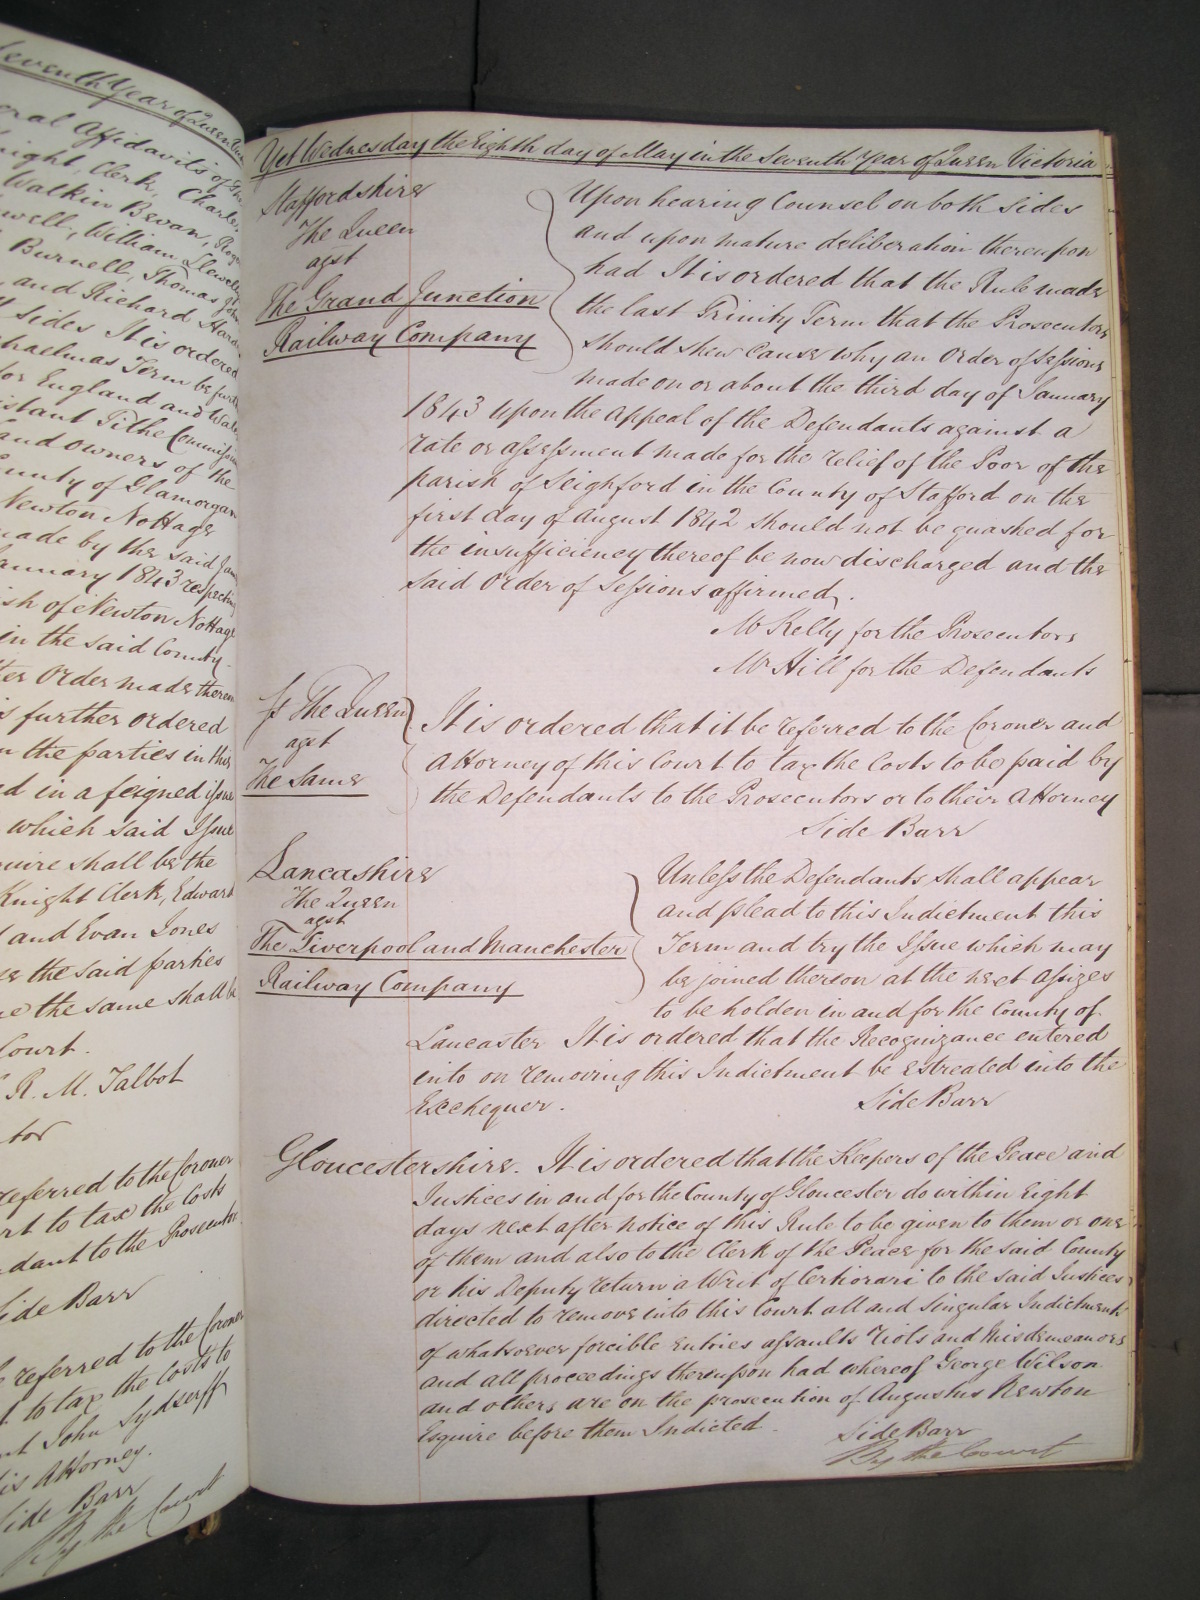 Seventh Year of Queen
eral Affidavits of
night, Clerk, Charles
Walkin Bevan,
well, William Llewel
Burnell, Thomas John
and Richard
sides It is ordered
chaelmas Term be
for England and Wal
istant Tithe Commission
and owners of the
County of Glamorgan
Newton Nottage
made by the said
anuary 1843 respecting
ish of Newton Nottage
in the said County
ter Order made thereon
is further ordered
n the parties in this
d in a feigned issue
which said Issue
uire shall be the
Knight Clerk, Edward
and Evan Jones
the said parties
the same shall be
Court.
R. M. Talbot
tor
referred to the Coroner
rt to tax the Costs
dant to the Prosecutor
Side Barr
referred to the Coroner
to tax the Costs to
John Sydserff
is Attorney.
Side Barr
By the Court
Yet Wednesday the Eighth day of May in the Seventh Year of Queen Victoria
Staffordshire
The Queen
agst
The Grand Junction
Railway Company
Upon hearing Counsel on both sides
and upon mature deliberation thereupon
had It is ordered that the Rule made
the last Trinity Term that the Prosecutors
should shew Cause why an Order of Sessions
made on or about the third day of January
1843 upon the appeal of the Defendants against a
rate or assessment made for the relief of the Poor of the
parish of Seighford in the County of Stafford on the
first day of August 1842 should not be quashed for
the insufficiency thereof be now discharged and the
said Order of Sessions affirmed.
Mr Kelly for the Prosecutors
Mr Hill for the Defendants
The Queen
agst
The Same
It is ordered that it be referred to the Coroner and
Attorney of this Court to tax the Costs to be paid by
the Defendants to the Prosecutors or to their Attorney
Side Barr
Lancashire
The Queen
agst
The Liverpool and Manchester
Railway Company
Unless the Defendants shall appear
and plead to this Indictment this
Term and try the Issue which may
be joined thereon at the next Assizes
to be holden in and for the County of
Lancaster It is ordered that the Recognizance entered
into on removing this Indictment be Estreated into the
Exchequer.
Side Barr
Gloucestershire. It is ordered that the Keepers of the Peace and
Justices in and for the County of Gloucester do within Eight
days next after notice of this Rule to be given to them or one
of them and also to the Clerk of the Peace for the said County
or his Deputy return a Writ of Certiorari to the said Justices
directed to remove into this Court all and singular Indictments
of whatsoever forcible Entries assaults riots and Misdemeanors
and all proceedings thereupon had whereof George Wilson
and others are on the prosecution of Augustus Newton
Esquire before them Indicted.
Side Barr
By the Court